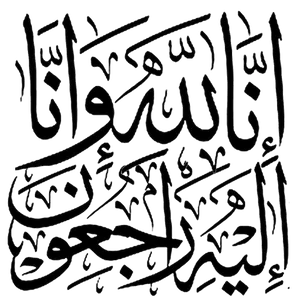 إِنَّا لِلّٰهِ وَإِنَّا
إِلَيْهِ رَاجِعُوْنَ